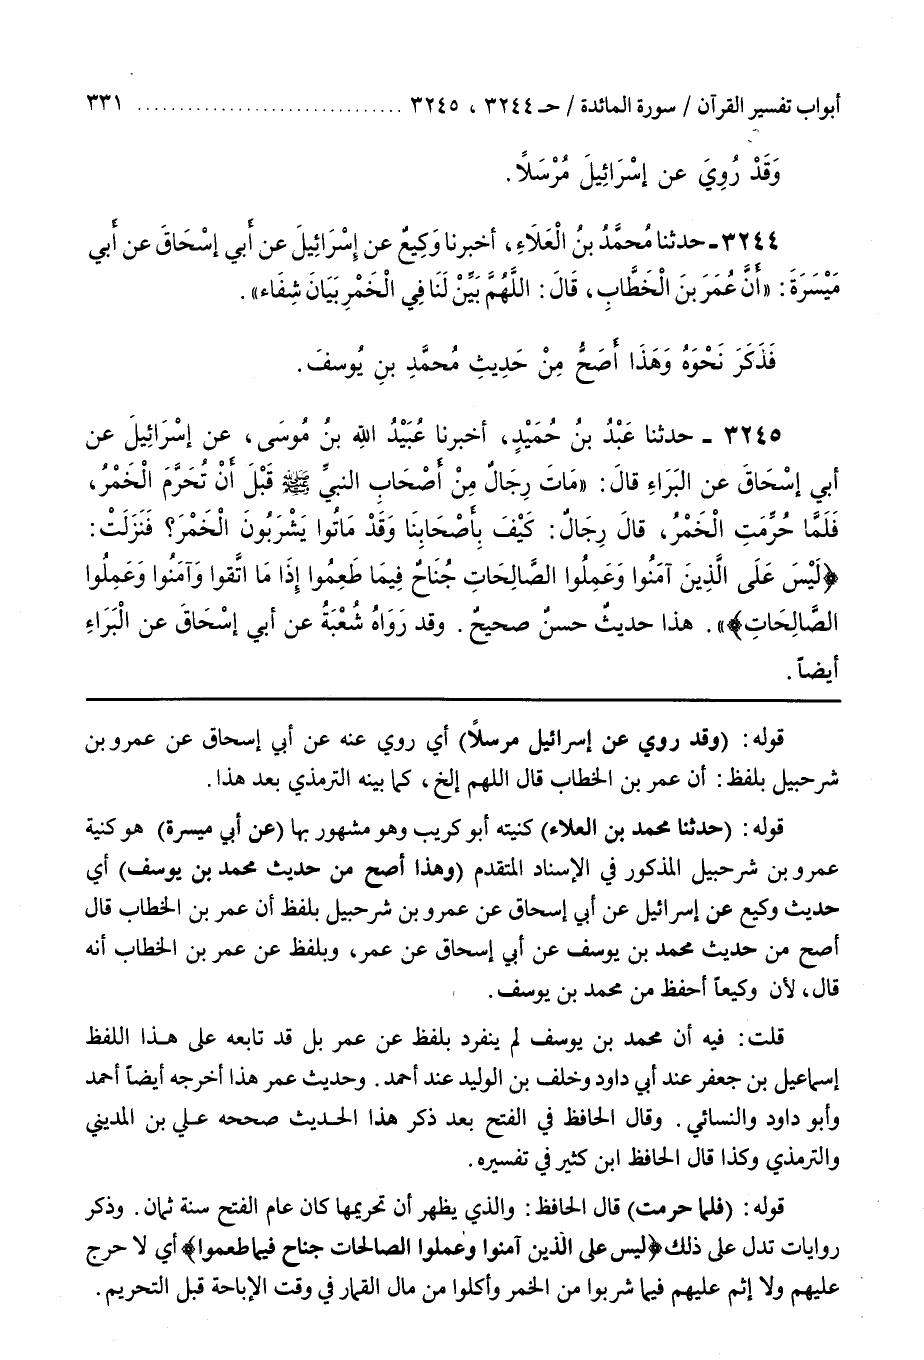 أبواب تفسير القرآن / سورة المائدة / حـ ٣٢٤٤ ، ٣٢٤٥ .............................. ٣٣١
وَقَدْ رُوِيَ عن إسْرَائِيلَ مُرْسَلاً.
٣٢٤٤ـ حدثنا مُحمَّدُ بنُ الْعَلَاءِ، أخبرنا وَكِيعٌ عن إِسْرَائِيلَ عن أَبي إسْحَاقَ عن أَبي
مَيْسَرَةَ: «أَنَّ عُمَرَ بنَ الْخَطَّابِ، قَالَ: اللَّهُمَّ بَيِّنْ لَنَا فِي الْخَمْرِ بَيَانَ شِفَاء».
فَذَكَرَ نَحْوَهُ وَهَذَا أَصَحُّ مِنْ حَدِيثِ مُحمَّدِ بنِ يُوسفَ.
٣٢٤٥ ـ حدثنا عَبْدُ بنُ حُمَيْدٍ، أخبرنا عُبَيْدُ اللهِ بنُ مُوسَى، عن إسْرَائِيلَ عن
أبي إسْحَاقَ عن البَرَاءِ قالَ: «مَاتَ رِجَالٌ مِنْ أَصْحَابِ النبيِّ ﷺ قَبْلَ أَنْ تُحَرَّمَ الْخَمْرُ،
فَلَمَّا حُرِّمَتِ الْخَمْرُ، قالَ رِجَالٌ: كَيْفَ بِأَصْحَابِنَا وَقَدْ مَاتُوا يَشْرَبُونَ الْخَمْرَ؟ فَنَزَلَتْ:
﴿لَيْسَ عَلَى الَّذِينَ آمَنُوا وَعَمِلُوا الصَّالِحَاتِ جُنَاحٌ فِيمَا طَعِمُوا إِذَا مَا اتَّقوا وَآمَنُوا وَعَمِلُوا
الصَّالِحَاتِ﴾». هذا حديثٌ حسنٌ صحيحٌ. وقد رَوَاهُ شُعْبَةُ عن أبي إسْحَاقَ عن الْبَرَاءِ
أيضاً.
قوله: (وقد روي عن إسرائيل مرسلاً) أي روي عنه عن أبي إسحاق عن عمرو بن
شرحبيل بلفظ: أن عمر بن الخطاب قال اللهم إلخ، كما بينه الترمذي بعد هذا.
قوله: (حدثنا محمد بن العلاء) كنيته أبو كريب وهو مشهور بها (عن أبي ميسرة) هو كنية
عمرو بن شرحبيل المذكور في الإسناد المتقدم (وهذا أصح من حديث محمد بن يوسف) أي
حديث وكيع عن إسرائيل عن أبي إسحاق عن عمرو بن شرحبيل بلفظ أن عمر بن الخطاب قال
أصح من حديث محمد بن يوسف عن أبي إسحاق عن عمر، وبلفظ عن عمر بن الخطاب أنه
قال، لأن وكيعاً أحفظ من محمد بن يوسف.
قلت: فيه أن محمد بن يوسف لم ينفرد بلفظ عن عمر بل قد تابعه على هذا اللفظ
إسماعيل بن جعفر عند أبي داود وخلف بن الوليد عند أحمد. وحديث عمر هذا أخرجه أيضاً أحمد
وأبو داود والنسائي. وقال الحافظ في الفتح بعد ذكر هذا الحديث صححه علي بن المديني
والترمذي وكذا قال الحافظ ابن كثير في تفسيره.
قوله: (فلما حرمت) قال الحافظ: والذي يظهر أن تحريمها كان عام الفتح سنة ثمان. وذكر
روايات تدل على ذلك ﴿ليس على الذين آمنوا وعملوا الصالحات جناح فيما طعموا﴾ أي لا حرج
عليهم ولا إثم عليهم فيما شربوا من الخمر وأكلوا من مال القمار في وقت الإباحة قبل التحريم.